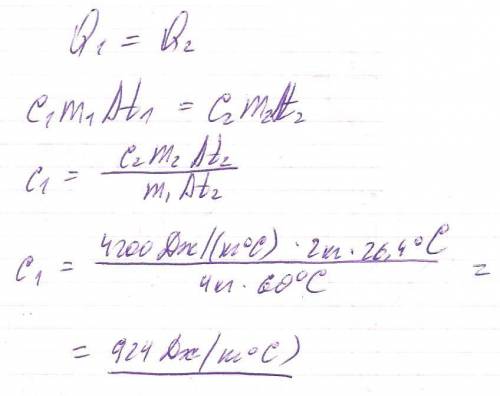 Q₁ = Q₂
c₁m₁Δt₁ = c₂m₂Δt₂
c₁ = c₂m₂Δt₂ / m₁Δt₂
c₁ = 4200 Дж/(кг°C) · 2кг · 26,4°C / 4кг · 60°C =
= 924 Дж/(кг°C)